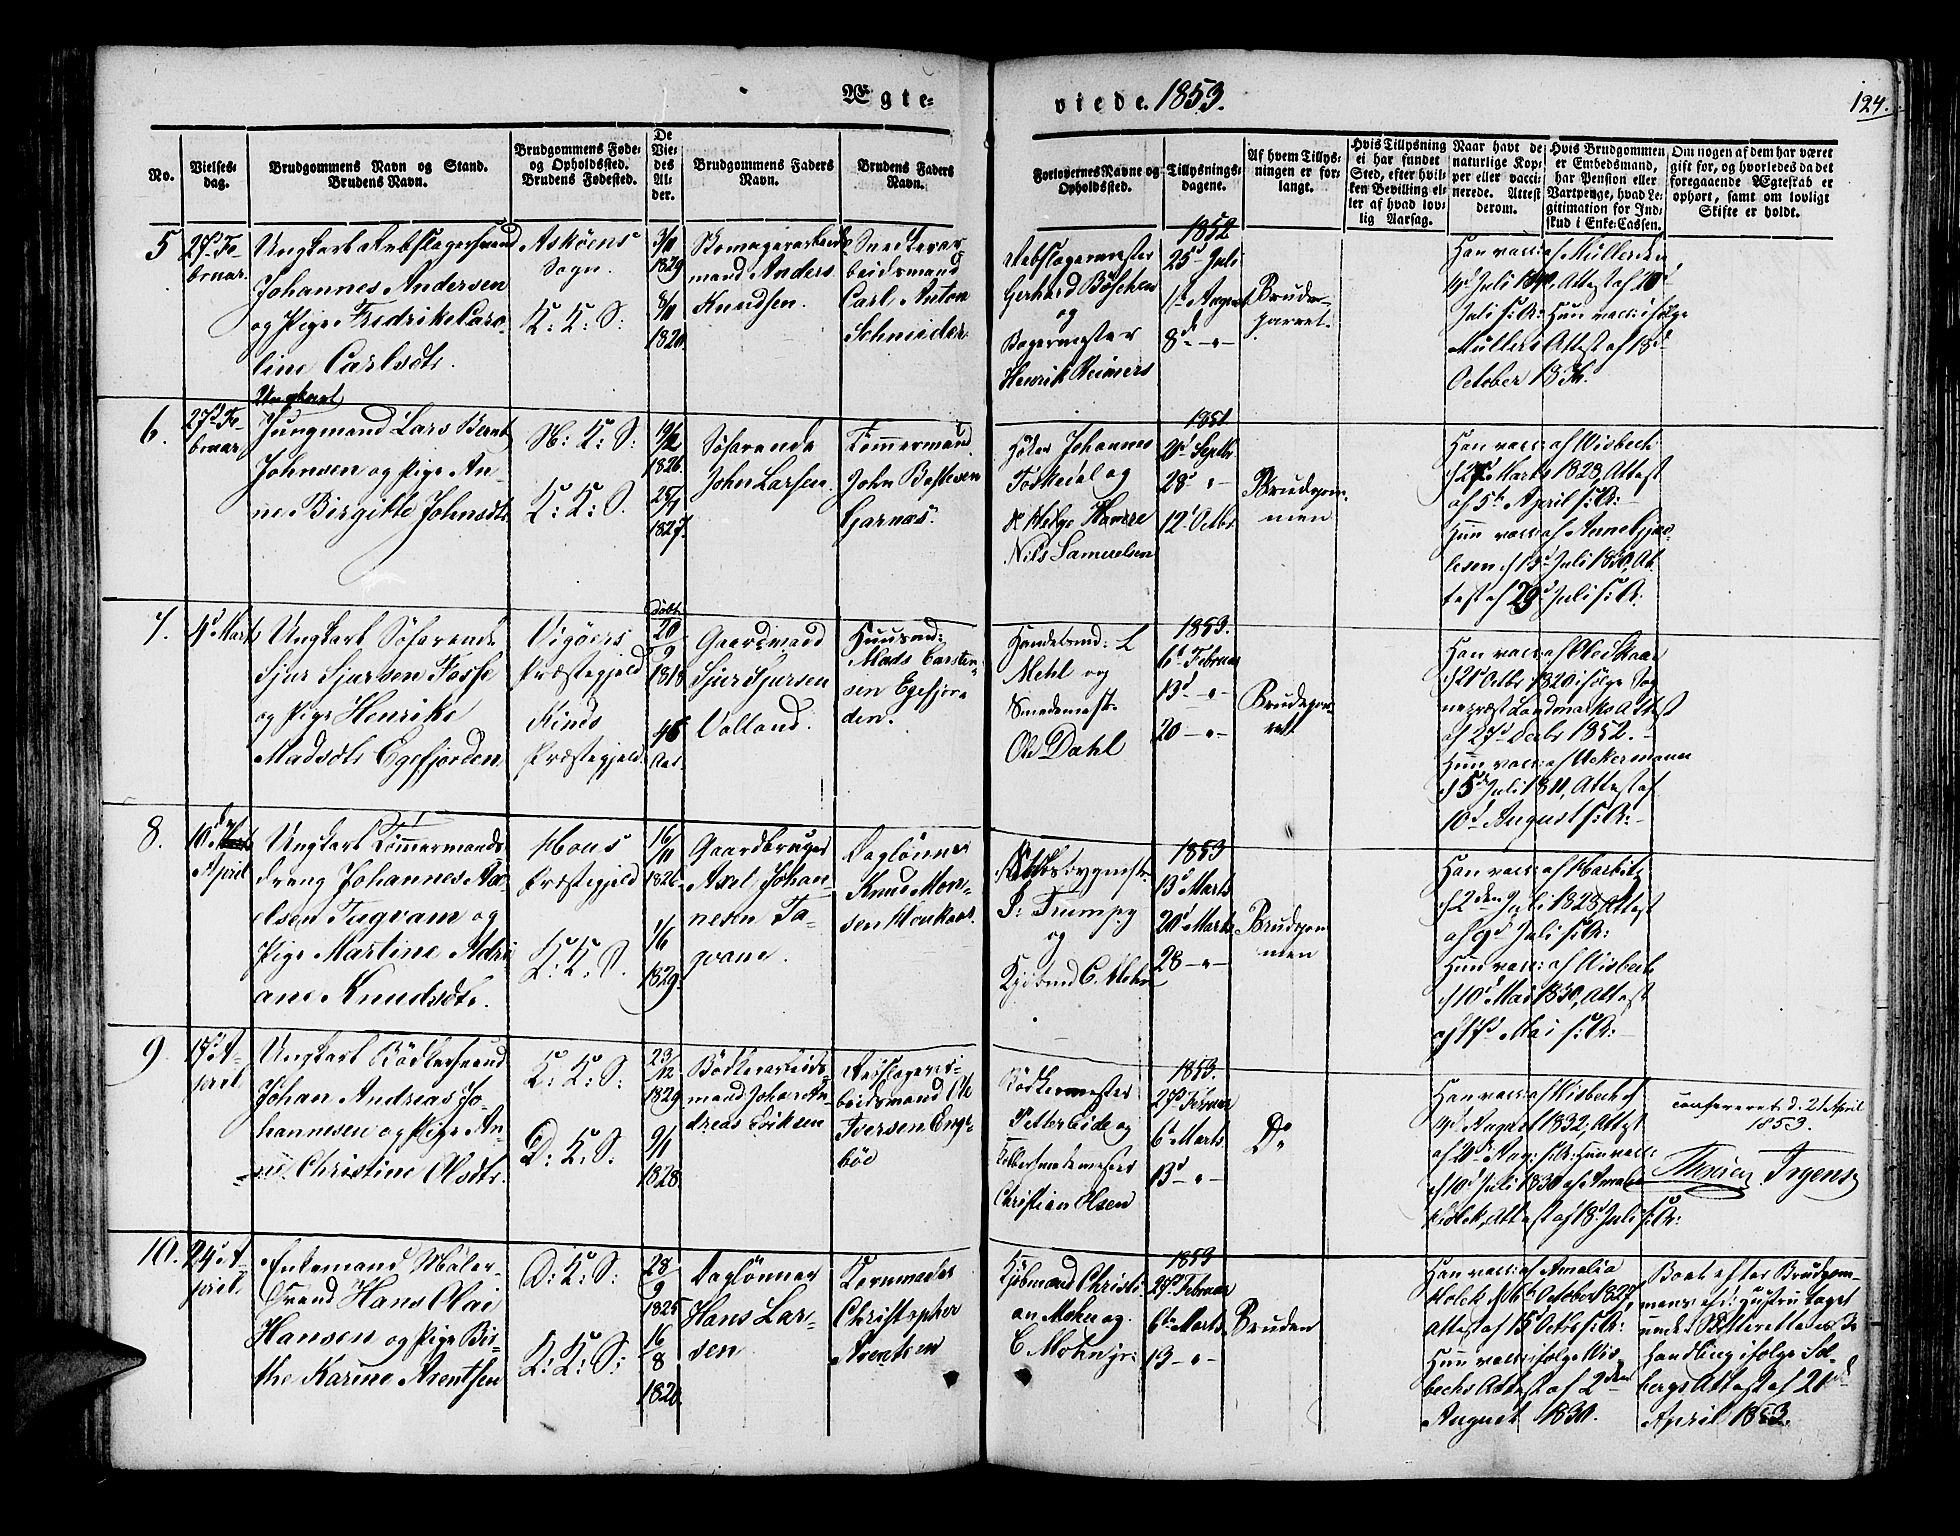 Ægte-
viede. 1853.
124.
No.
Vielses-
dag.
Brudgommens Navn og Stand.
Brudens Navn.
Brudgommens Føde-
og Opholdssted.
Brudens Fødested.
De
Vie-
des
Al-
der.
Brudgommens Faders
Navn.
Brudens Faders
Navn.
Forlovernes Navne og
Opholdssted.
Tillysnings-
dagene.
Af hvem Tillys-
ningen er for-
langt.
Hvis Tillysning
ei har fundet
Sted, efter hvil-
ken Bevilling el-
ler af hvad lov-
lig Aarsag.
Naar havt de
naturlige Kop-
per eller vacci-
nerede. Attest
derom.
Hvis Brudgommen
er Embedsmand,
har Pension eller
Vartpenge, hvad Le-
gitimation for Ind-
skud i Enke-Cassen.
Om nogen af dem har været
gift før, og hvorledes da det
foregaaende Ægteskab er
ophørt, samt om lovligt
Skifte er holdt.
5
27d Fe-
bruar
Ungkarl Rebslagersvend
Johannes Andersen
og Pige Fredrike Caro-
line Carlsdtr.
Askøens
Sogn.
K: K: S:
1829
8/11
1820
mand Anders
Knudsen.
beidsmand
Carl Anton
Schneider
Rebslagermester
Gerhard Böschen
og
Bagermester
Henrik Reimers
1852
25d Juli
1d August
8d - " -
Brude-
parret.
Han vacc: af Müller den
Juli s: A: Hun vacc: ifølge
Müllers Attest af 18d
October
6.
27d Fe-
bruar
Ungkarl
Jungmand Lars Bernt
Johnsen og Pige An-
ne Birgitte Johnsdtr.
N: K: S:
K: K: S.
19/12
1826
25/7
1827.
Søfarende
John Larsen.
Tømmermand
John
Garnæs.
Johannes
og
Nils Samuelsen
1851
Septbr
28d "
12t Octbr
Brudgom-
men
Han vacc: af Wisbech
Marts 1828, Attest
af 5te April s: A:
Hun vacc: af Anne
lesen d 13d Juli 1830, At-
test af 29d Juli s: A:
7.
4d Mart
Ungkarl Søfarende
Sjur Sjursen Fosse
og Pige Henrike
Madsdtr Egefjorden
Vigøers
Præstegjeld
Kinds
Præstegjeld.
Døbt.
20
9
1818
46
Aar
Gaardmand
Sjur Sjursen
Volland.
Huusmd:
Mads Carsten-
sen Egefjor-
den.
Handelsmd: L
Mehl og
Smedemestr
Ole Dahl
1853.
6d Februar
13d - " -
20 - " -
Brudepar-
ret
Han vacc: af Ole Skaar
d 21d Octbr 1820 ifølge Sog-
nepræst Landmarks Attest
af 27d Decbr 1852. -
Hun vacc: af Ackermann
d 5d Juli 1811, Attest af
10d August s: A: -
8.
10d Marts
April
Ungkarl Tømmermands
dreng Johannes Ax-
elsen Tugvam og
Pige Martine Adri-
ane Knudsdtr.
Hous
Præstegjeld
K: K: S.
16/11
1826
1/6
1829.
Gaardbruger
Axel Johan-
nesen
Dagløner
Knud Mon-
sen Houkaas.
P: Trumpy
og
Kjøbmd C. Mohr
1853
13d Marts
20d Marts
28 - " -
Brudgom-
men
Han vacc: af Harbitz
d 2den Juli 1828, Attest
af 9d Juli s: A:
Hun vacc: af Wisbech
d 10d Mai 1830, Attest
af 17d Mai s: A: -
9
17d A-
pril
Ungkarl Bødkersvend
Johan Andreas Jo-
hannesen og Pige An-
ne Christine Olsdtr.
K: K: S:
D: K: S:
23/12
1829
9/1
1828.
Bødkerarbeids-
mand Johan An-
dreas Eriksen
Rebslagerar-
beidsmand Ole
Iversen Enge-
bøe
Bødkermester
Petter Eide og
Christian Olsen
1853.
27d Februar
6d Marts
13d - " -
Do
Han vacc: af Wisbech af
August 1832, Attest
af Aug: s: A: Hun vacc:
d 10d Juli 1830 af Amalia
Holck, Attest af 18d Juli s: A:
Confereret d. 21 April
1853.
Irgens
10.
24d A-
pril
Enkemand Maler-
svend Hans Olai
Hansen og Pige Bir-
the Karine Arentsen
D: K: S:
K: K: S:
28
9
1825
16
8
1828.
Dagløner
Hans Lar-
sen
Kornmaaler
Christopher
Arentsen
Kjøbmand Christi-
an Mohr og
C. Mohn jr:
1853
27d Februar
6te Marts
13 - " -
Bruden
Han vacc: af Amalia
Holck d 16d October 1827,
Attest af 15d Octbr s: A:
Hun vacc: ifølge Wis-
bechs Attest af 2den
August 1830.
Boet efter Brudgom-
mens afd: Hustru taget
under Skifterettens Be-
handling ifølge Sol-
bergs Attest af 21d
April 1853.